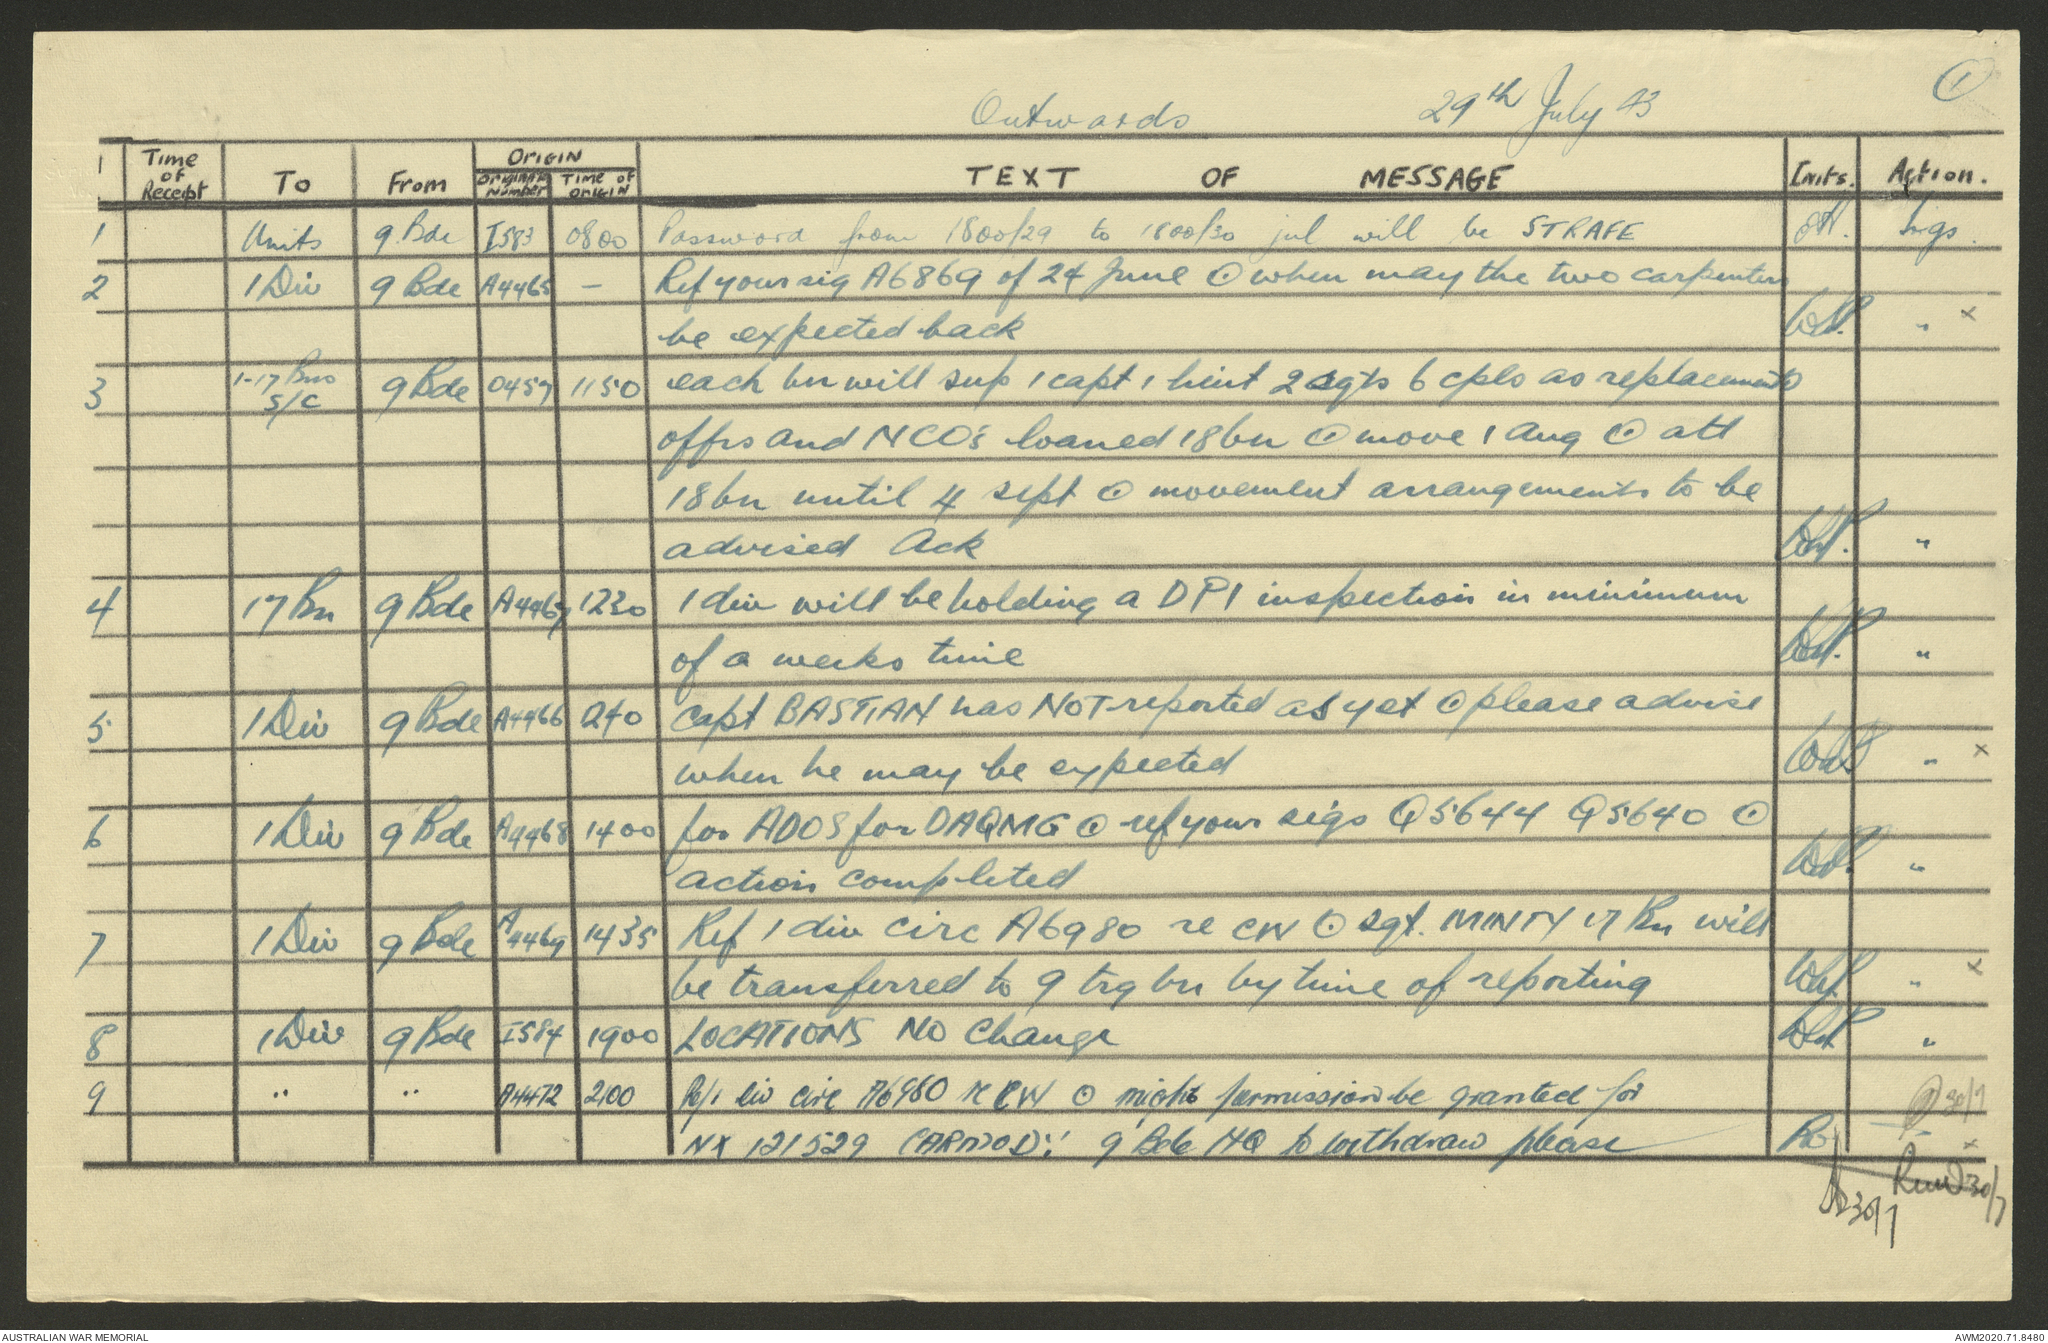 ①
Outwards 29th July 43
Time of Receipt To From ORIGIN Originator Number Time of Origin TEXT OF MESSAGE Inits. Action.
1 Units 9 Bde I583 0800 Password from 1800/29 to 1800/30 jul will be STRAFE Sigs.
2 1 Div 9 Bde A4465 – Ref your sig A6869 of 24 June ⊙ when may the two carpenters
be expected back " x
3 1-17 Bns S/C 9 Bde 0457 1150 each bn will sup 1 capt 1 lieut 2 sgts 6 cpls as replacements
offrs and NCO's loaned 18 bn ⊙ move 1 Aug ⊙ att
18 bn until 4 sept ⊙ movement arrangements to be
advised Ack "
4 17 Bn 9 Bde A4467 1230 1 div will be holding a DPI inspection in minimum
of a weeks time "
5 1 Div 9 Bde A4466 1240 Capt BASTIAN has NOT reported as yet ⊙ please advise
when he may be expected " x
6 1 Div 9 Bde A4468 1400 for ADOS for DAQMG ⊙ ref your sigs Q5644 Q5640 ⊙
action completed "
7 1 Div 9 Bde A4469 1435 Ref 1 div circ A6980 re CW ⊙ sgt. MINTY 17 Bn will
be transferred to 9 trg bn by time of reporting " x
8 1 Div 9 Bde I584 1900 LOCATIONS NO Change "
9 " " A4472 2100 Ref 1 div circ A6980 re CW ⊙ might permission be granted for 30/7
NX 121529 CARMODY 9 Bde HQ to withdraw please x
30/7
30/7
AUSTRALIAN WAR MEMORIAL AWM2020.71.8480